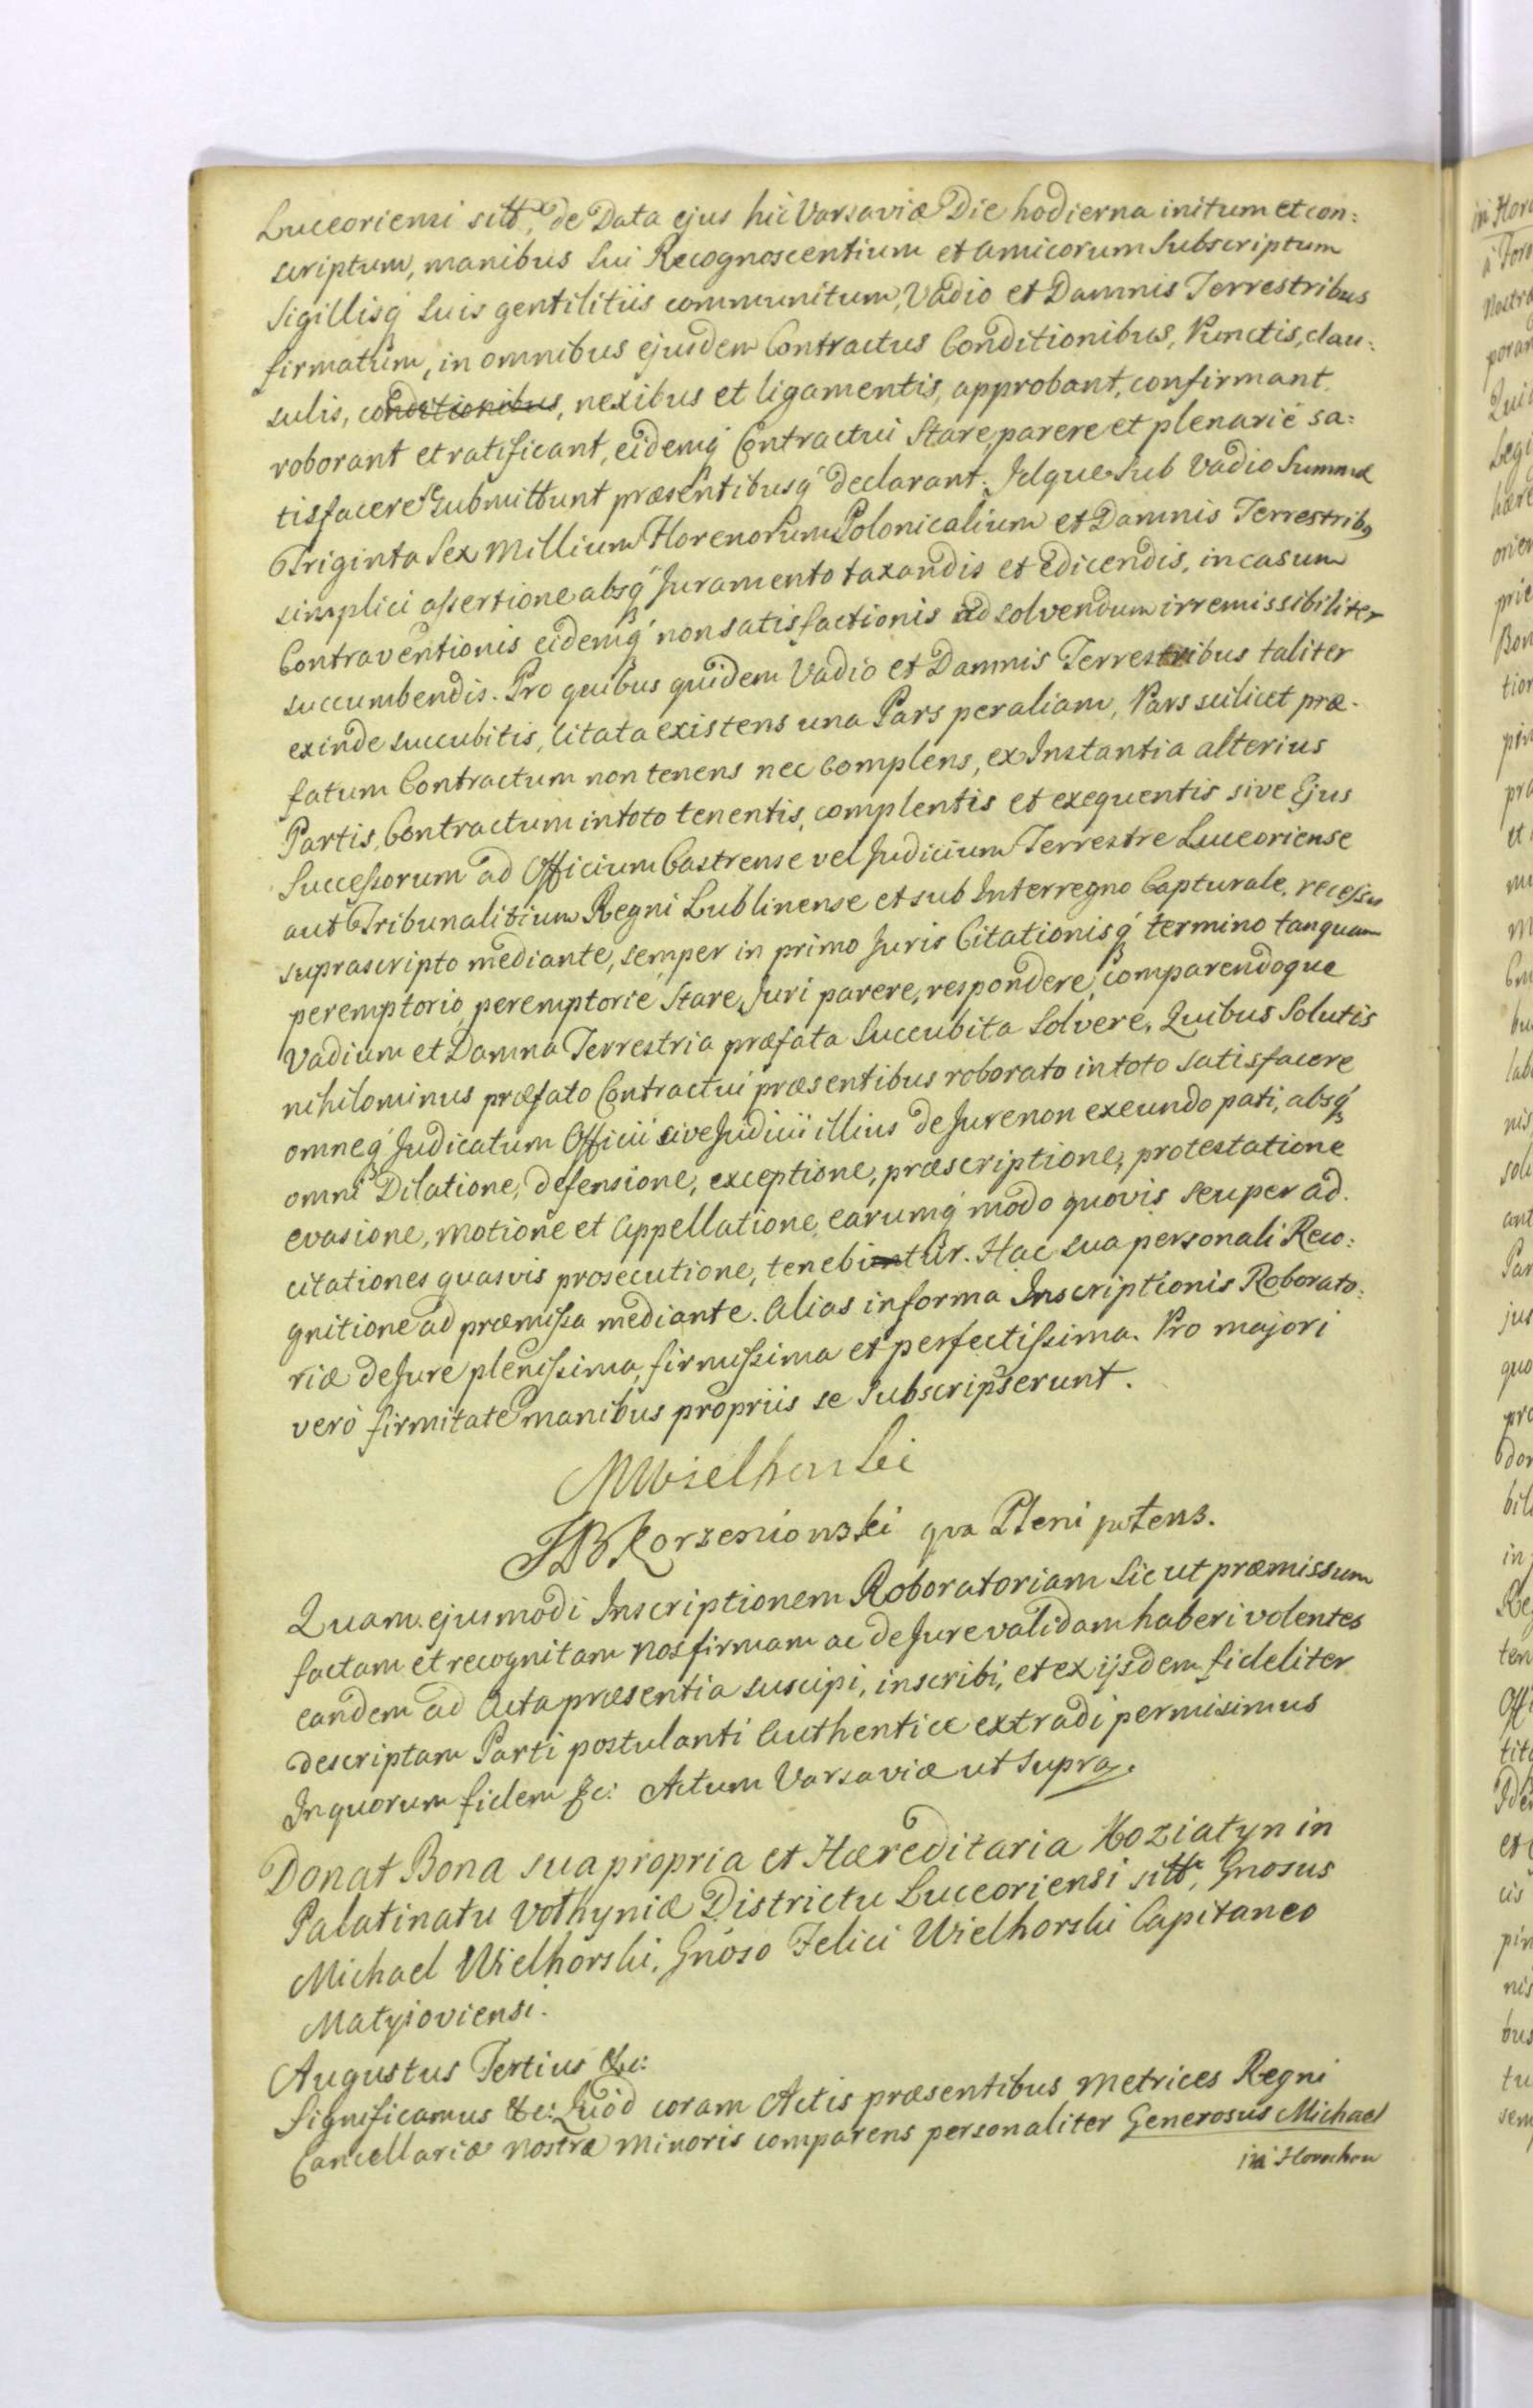 Luceoriensi sitt: de Data ejus hic Varsaviæ Die hodierna initum et con:
scriptum, manibus sui Recognoscentium et amicorum Subscriptum
Sigillisq́ suis gentilitiis communitum, Vadio et Damnis Terrestribus
firmatum, in omnibus ejusdem Contractus Conditionibus, Punctis, clau:
sulis, conditionibus, nexibus et ligamentis, approbant, confirmant
roborant et ratificant, eidemq́ Contractui Stare, parere et plenarié sa:
tisfacere se submittunt præsentibusq́ declarant. Idque sub Vadio Summæ
Triginta Sex Millium Florenorum Polonicalium et Damnis Terrestribꝫ
simplici assertione absq́ Juramento taxandis et edicendis, in casum
Contraventionis eidemq́ non satisfactionis ad solvendum irremissibiliter
succumbendis. Pro quibus quidem Vadio et Damnis Terrestribus taliter
exinde succubitis, Citata existens una Pars per aliam, Pars scilicet præ.
fatum Contractum non tenens nec complens, ex Instantia alterius
Partis, Contractum in toto tenentis, complentis et exequentis sive Ejus
Successorum ad Officium Castrense vel Judicium Terrestre Luceoriense
aut Tribunalitium Regni Lublinense et sub Interregno Capturale, recessu
suprascripto mediante, semper in primo Juris Citationisq́ termino tanquam
peremptorio, peremptorié Stare, Juri parere, respondere, comparendoque
Vadium et Damna Terrestria præfata Succubita Solvere, Quibus Solutis
nihilominus præfato Contractui præsentibus roborato in toto satisfacere
omneq́ Judicatum Officii sive Judicii illius de Jure non exeundo pati, absq́
omni Dilatione, defensione, exceptione, præscriptione, protestatione
evasione, motione et Appellatione, earumq́ modo quovis semper ad.
citationes quasvis prosecutione, tenebuntur. Hac sua personali Reco:
gnitione ad præmissa mediante. Alias in forma Inscriptionis Roborato:
riæ de Jure plenissima, firmissima et perfectissima. Pro majori
veró firmitate manibus propriis se Subscripserunt.
MWielhorski
JB Korzeniowski qua Plenipotens.
Quam ejusmodi Inscriptionem Roboratoriam sic ut præmissum
factam et recognitam nos firmam ac de Jure validam haberi volentes
eandem ad Acta præsentia suscipi, inscribi, et ex ijsdem fideliter
descriptam Parti postulanti Authentice extradi permisimus
In quorum fidem &c: Actum Varsaviæ ut supra.
Donat Bona sua propria et Hæreditaria Koziatyn in
Palatinatu Volhyniæ Districtu Luceoriensi sitt:, Gnosus
Michael Wielhorski, Gnoso Felici Wielhorski Capitaneo
Matyioviensi.
Augustus Tertius &c:
Significamus &c: Quod coram Actis præsentibus Metrices Regni
Cancellariæ nostræ Minoris comparens personaliter Generosus Michael
in Horochow